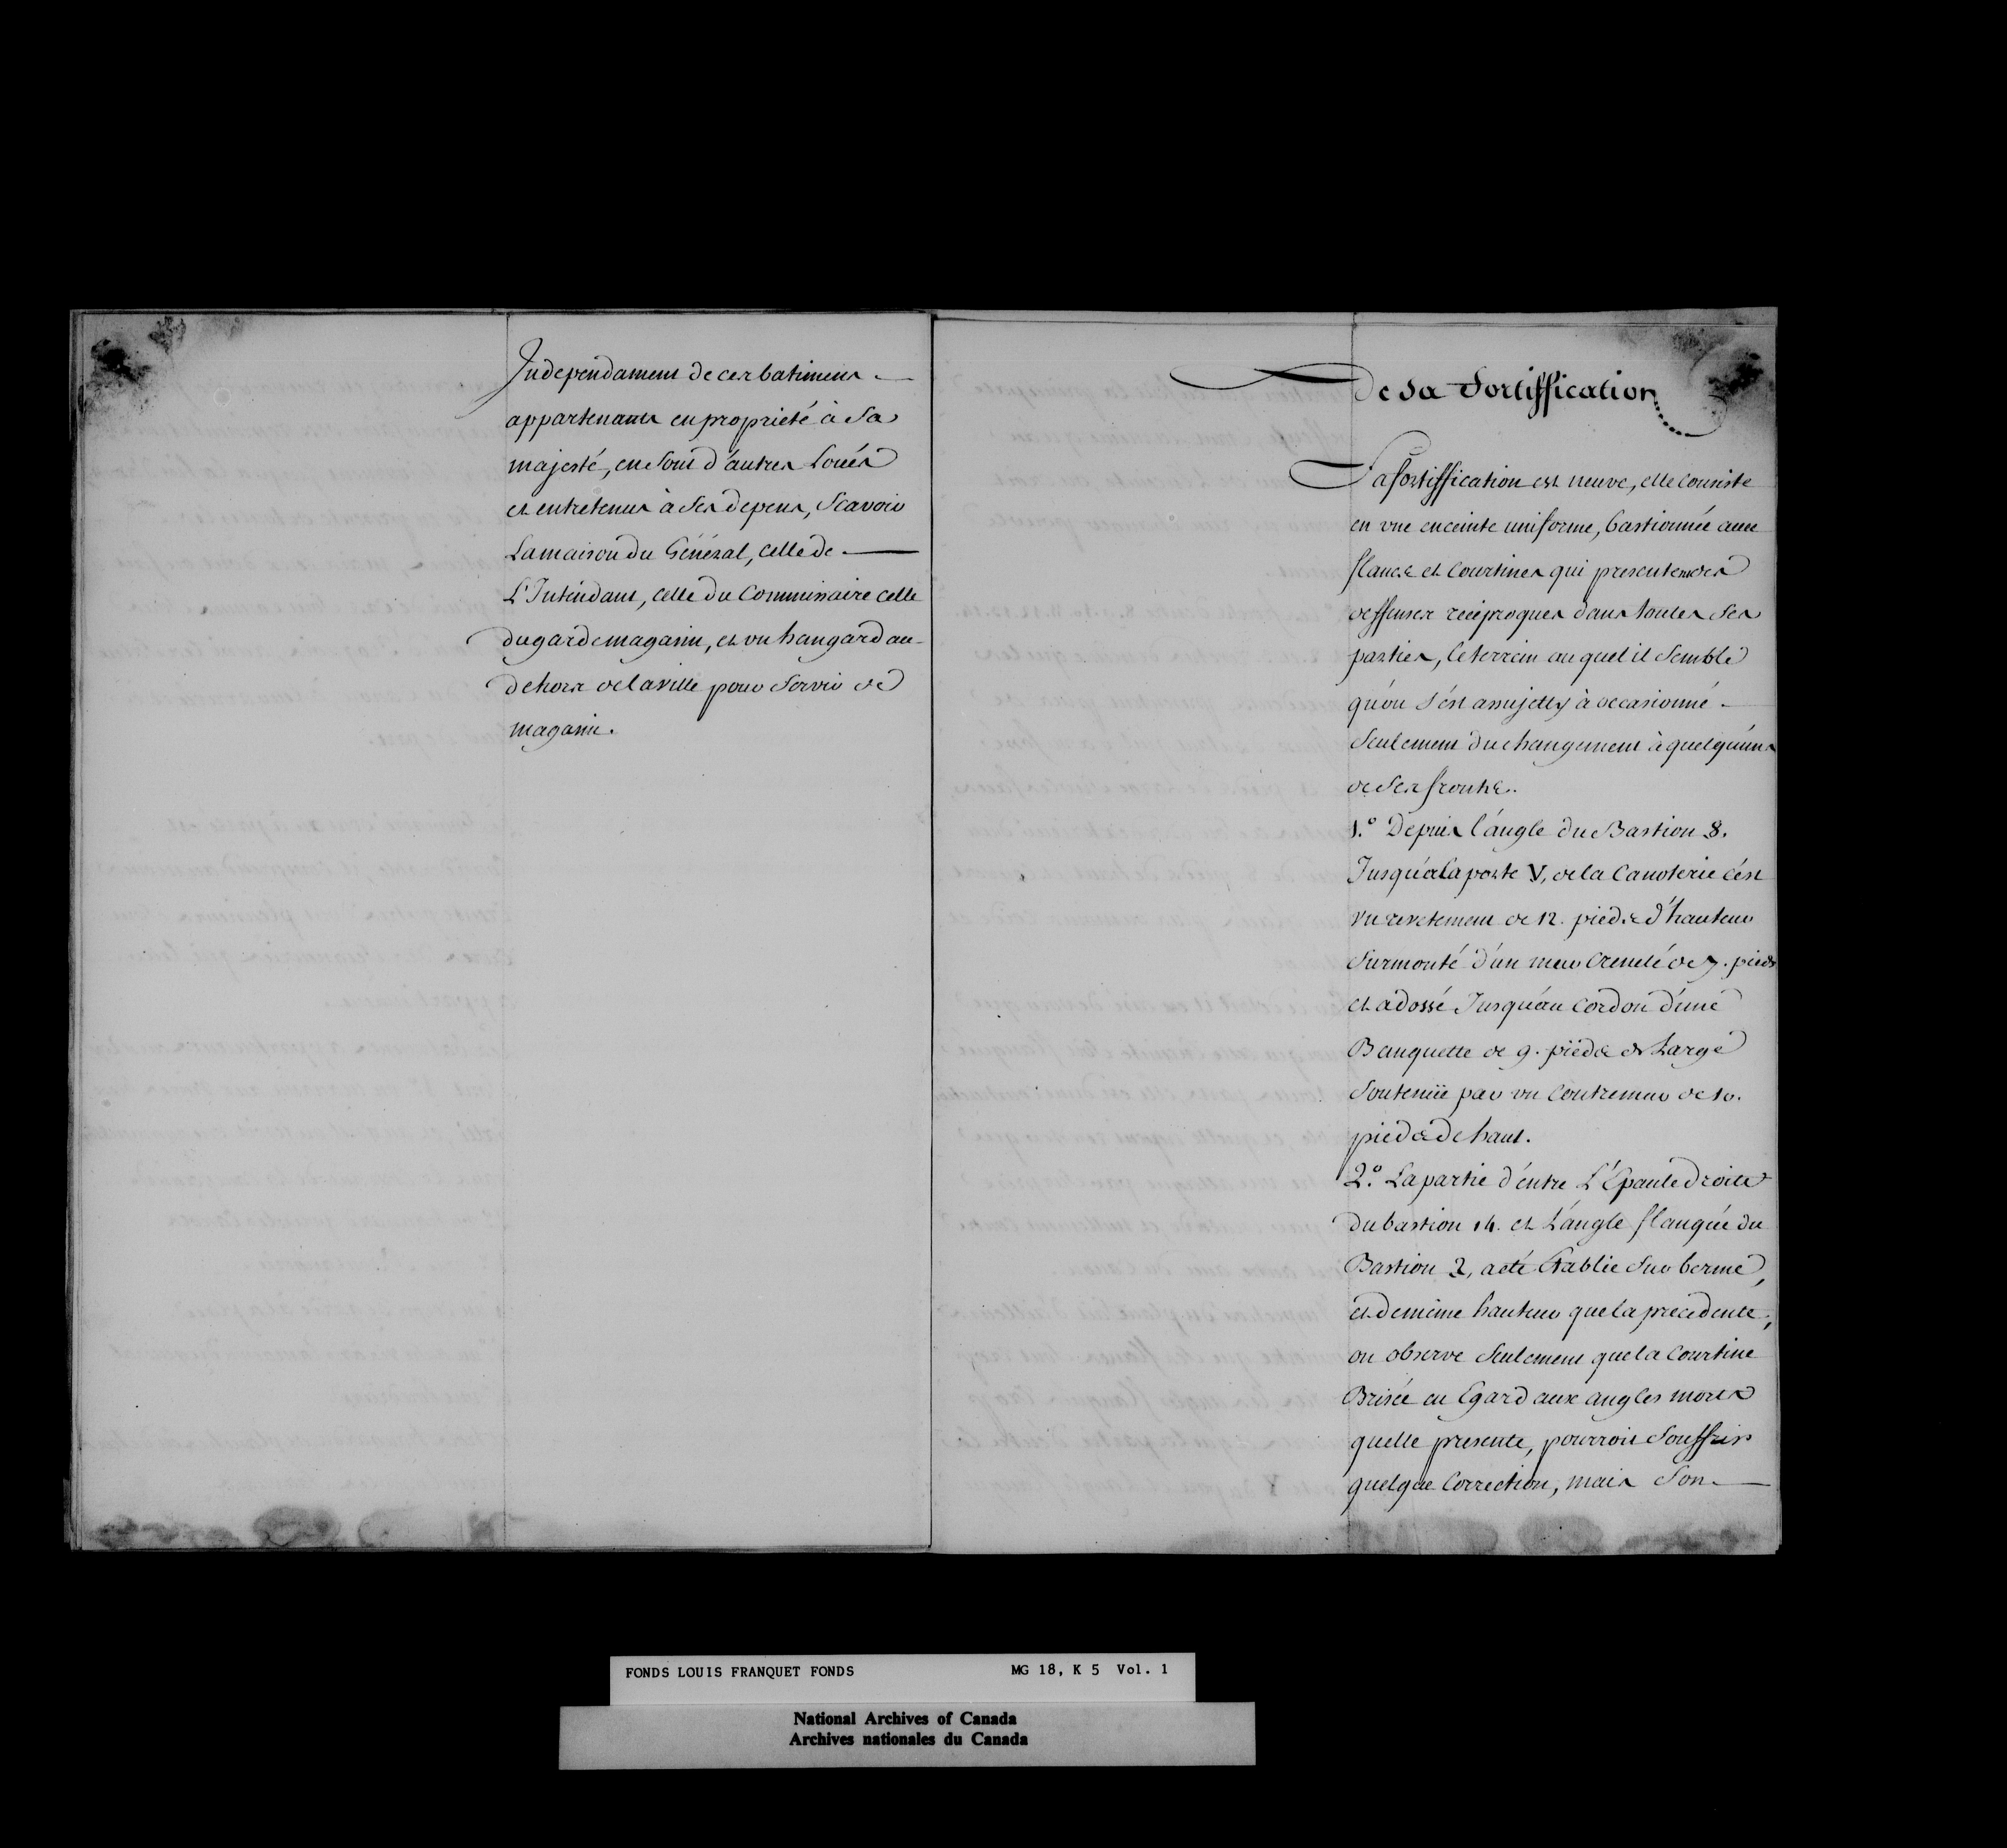 Independament de ces batimens
appartenants en proprieté à Sa
majesté, en sont d'autres Loués
et entretenus à Ses depens, Scavoir
La maison du Général, celle de
L'Intendant, celle du Commissaire celle
du gardemagasin, et un hangard au
dehors de la ville pour servir de
magasin.
De sa Fortiffication
Sa fortiffication est neuve, elle consiste
en une enceinte uniforme, bastionnée avec
flancs et Courtines qui presentent des
deffenses reciproques dans toutes Ses
parties, le terrein auquel il Semble
qu'on s'est assujetty à occasionné
Seulement du changement à quelqu'uns
de Ses fronts.
1.° Depuis l'angle du Bastion 8.
Jusqu'à la porte V, de la Canoterie c'est
un revetement de 12. pieds d'hauteur
Surmonté d'un mur Crenelé de 7. pieds
et adossé Jusqu'au Cordon d'une
Banquette de 9. pieds de Large
Soutenüe par un Contremur de 10.
pieds de haut.
2.° La partie d'entre L'Epaule droite
du bastion 14. et L'angle flanqué du
Bastion 2, a eté Etablie Sur berme,
et de meme hauteur que la precedente,
on observe Seulement que la Courtine
Brisée eu Egard aux angles morts
quelle presente, pourroit Souffrir
quelque Correction, mais Son
FONDS LOUIS FRANQUET FONDS MG 18, K 5 Vol. 1
National Archives of Canada
Archives nationales du Canada